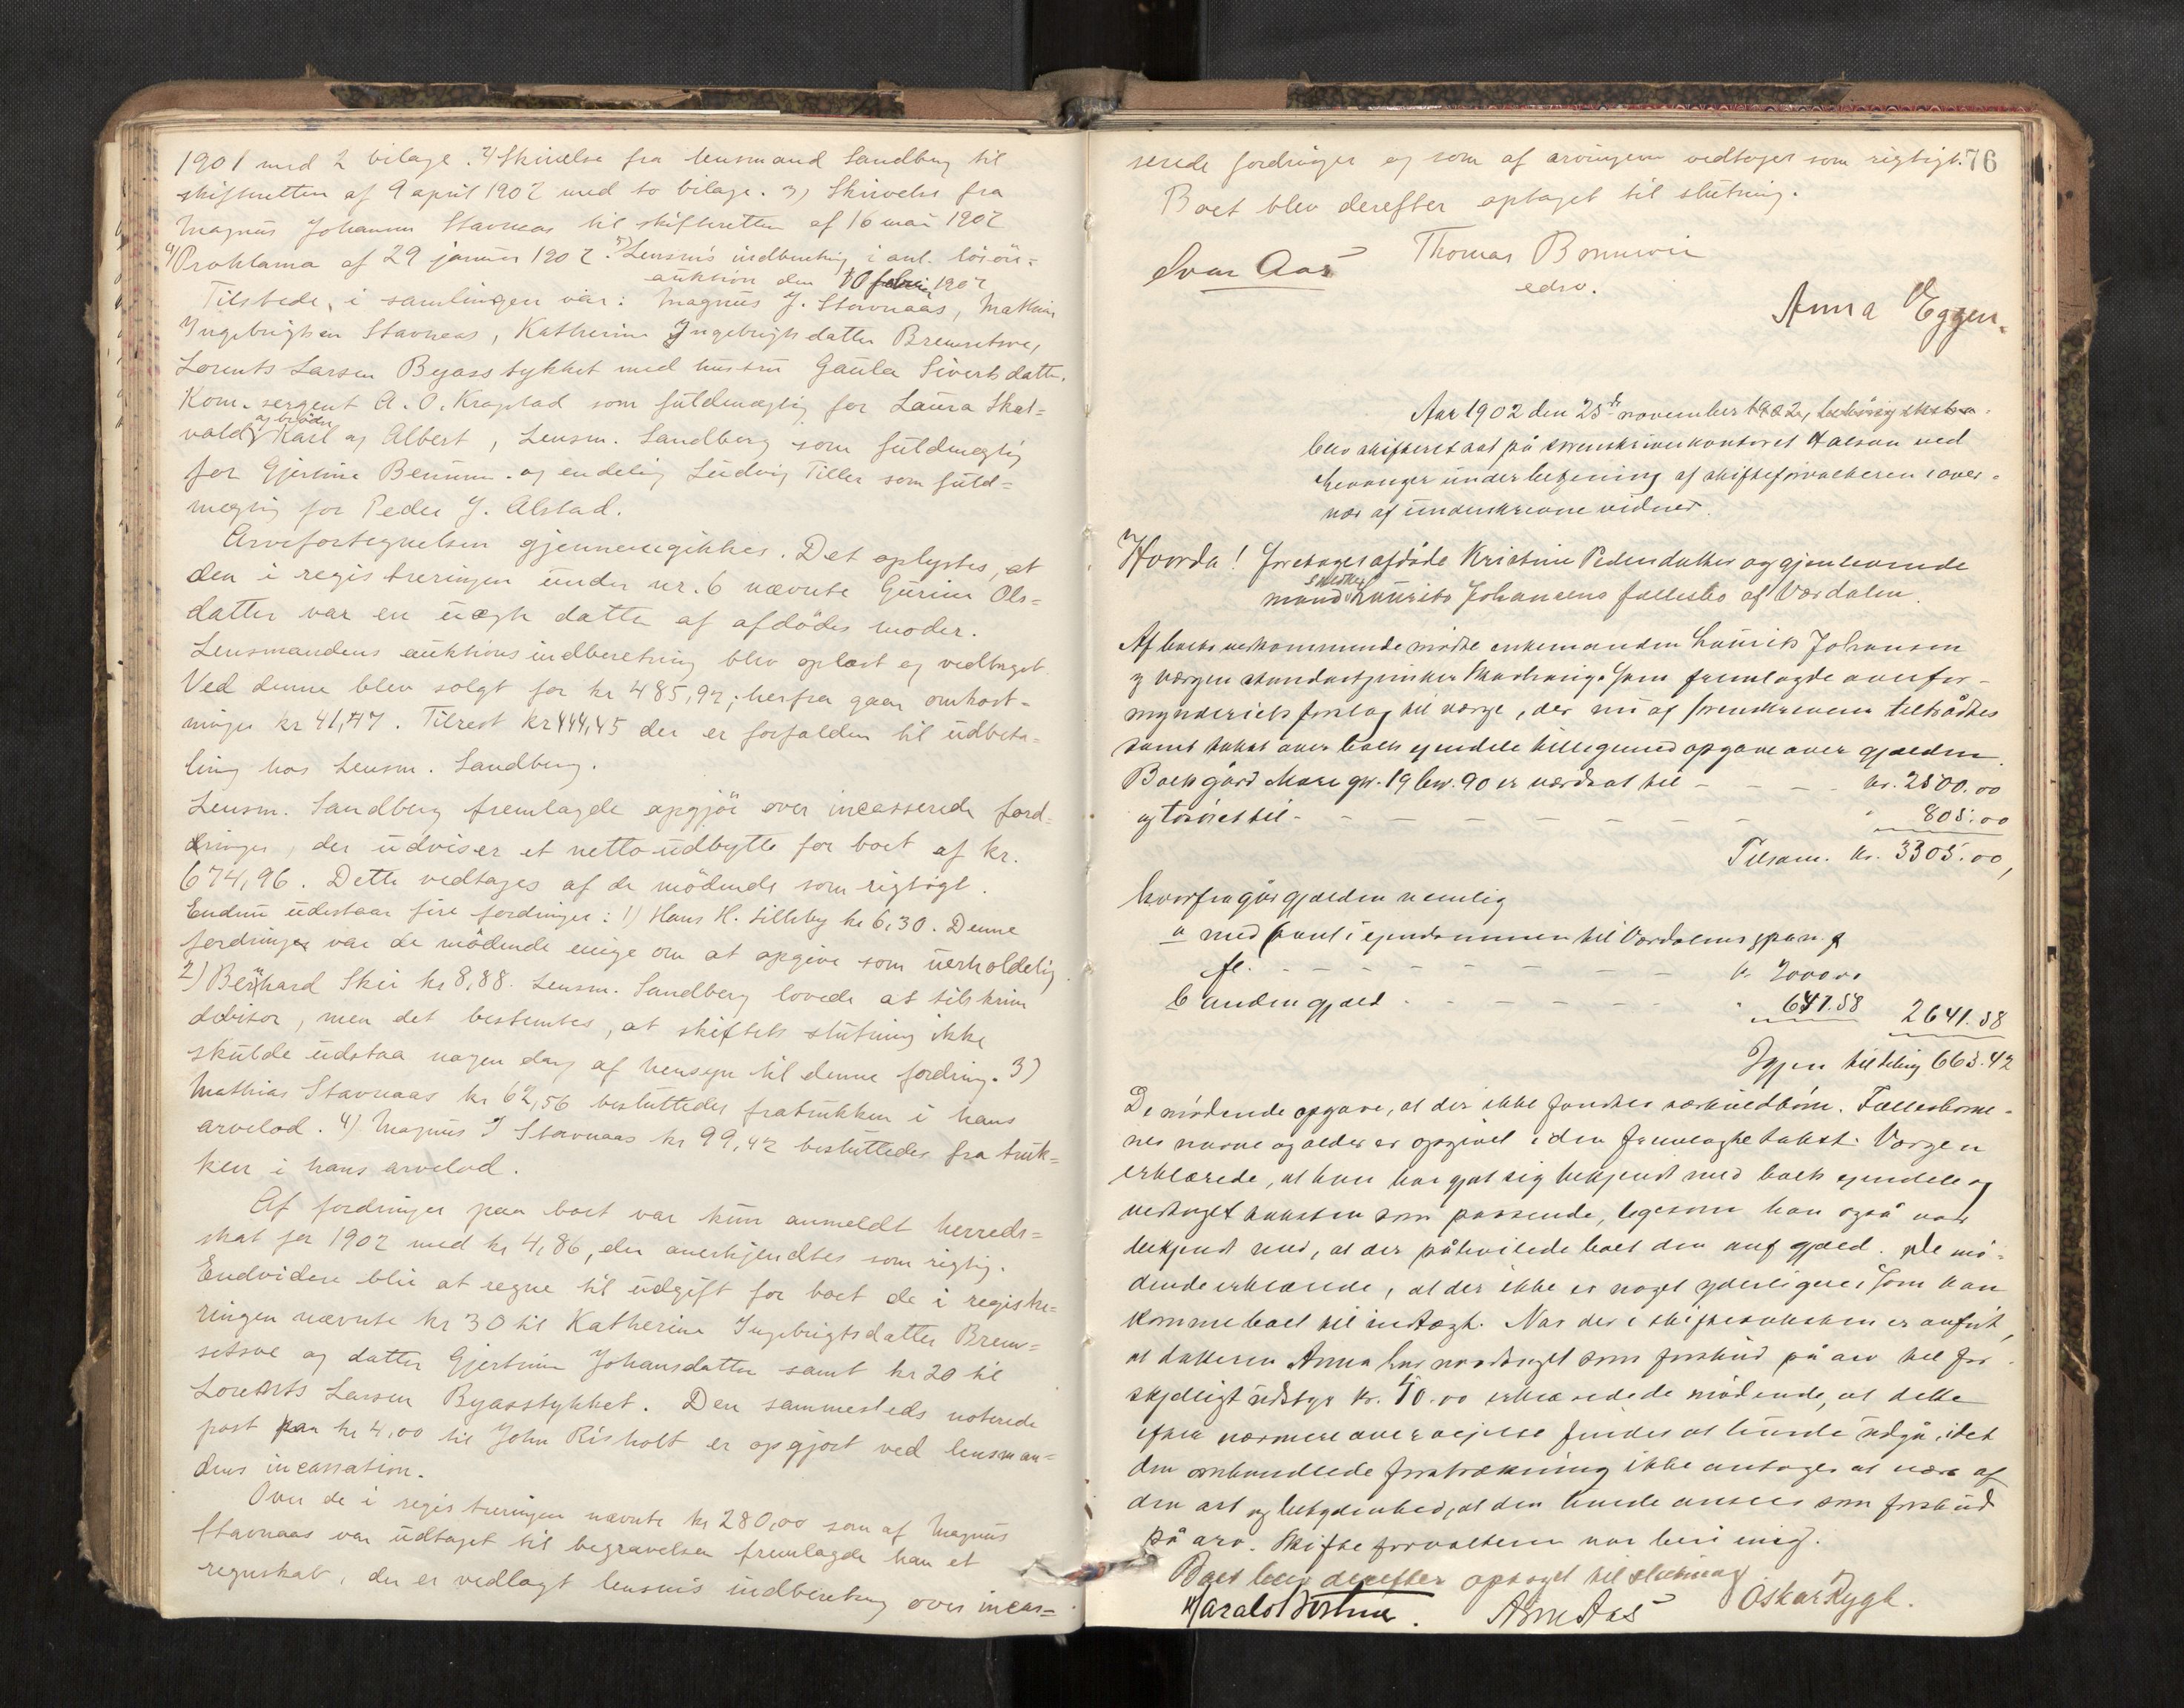 1901 med 2 bilage. 2) Skrivelse fra lensmand Sandberg til
skifteretten af 9 april 1902 med to bilage. 3) Skrivelse fra
Magnus Johansen Stavnaas til skifteretten af 16 mai 1902
4) Proklama af 29 januar 1902. 5) Lensm's indberetning i anl. løsøre=
auktion den 10 1902
Tilstede i samlingen var: Magnus J. Stavnaas, Mathias
Ingebrigtsen Stavnaas, Katherine Ingebrigtsdatter Bremsetsve,
Lorents Larsen Byasstykket med hustru Gaula Sivertsdatter,
Kom. sergent A. O. Kragstad som fuldmægtig for Laura Skat=
vold og brødre Karl og Albert, Lensm. Sandberg som fuldmægtig
for Gjertine Benum og endelig Ludvig Tiller som fuld=
mægtig for Peder J. Alstad.
Arvefortegnelsen gjennemgikkes. Det oplystes, at
den i registreringen under nr. 6 nævnte Gurine Ols=
datter var en uægte datter af afdødes moder.
Lensmandens auktionsindberetning blev oplæst og vedtaget.
Ved denne blev solgt for kr 485,92; herfra gaar omkost=
ninger kr 41,47. Tilrest kr 444,45 der er forfalden til udbeta=
ling hos Lensm. Sandberg.
Lensm. Sandberg fremlagde opgjør over incasserede ford=
ringer, der udviser et nettoudbytte for boet af kr.
674,96. Dette vedtages af de mødende som rigtigt.
Endnu udestaar fire fordringer: 1) Hans H. Lilleby kr 6,30. Denne
fordring var de mødende enige om at opgive som uerholdelig.
2) Bernhard Skei kr 8,88. Lensm. Sandberg lovede at tilskrive
debitor, men det bestemtes, at skiftets slutning ikke
skulde udstaa nogen dag af hensyn til denne fordring. 3)
Mathias Stavnaas kr 62,56 besluttedes fratrukken i hans
arvelod. 4) Magnus J Stavnaas kr 99,42 besluttedes fratruk=
ken i hans arvelod.
Af fordringer paa boet var kun anmeldt herreds=
skat for 1902 med kr 4,86, der anerkjendtes som rigtig.
Endvidere blir at regne til udgift for boet de i registre=
ringen nævnte kr 30 til Katherine Ingebrigtsdatter Brem=
setsve og datter Gjertine Johansdatter samt kr 20 til
Lorents Larsen Byasstykket. Den sammesteds noterede
post paa kr 4,00 til John Risholt er opgjort ved lensman=
dens incassation.
Over de i registreringen nævnte kr 280,00 som af Magnus
Stavnaas var udtaget til begravelsen fremlagde han et
regnskab, der er vedlagt lensm's indberetning over incas=
serede fordringer og som af arvingerne vedtages som rigtigt. 76
Boet blev derefter optaget til slutning.
Ivar Aas Thomas
edsv.
Anna Eggen.
Aar 1902 den 25de november
blev skifteret sat på sorenskriverkontoret ved
Levanger under betjening af skifteforvalteren i over=
vær af underskrevne vidner.
Hvorda! foretages afdøde Kristine Pedersdatter og gjenlevende
mand Laurits Johansens fællesbo af Værdalen.
Af boets vedkommende mødte enkemanden Laurits Johansen
og værgen som fremlagde overfor-
mynderiets forslag til værge, der nu af sorenskriveren tiltrådtes
samt takst over boets eiendele tilligemed opgave over gjælden.
Boets gård Mære gnr. 19 bnr. 90 er værdsat til - - - - kr. 2500.00
og løsøret til - - - - - - - - " 805.00
Tilsam. kr. 3305.00,
hvorfra går gjælden nemlig
a med pant i eiendommen til Værdalens
fl. - - - - - - - - kr. 2000.00
b anden gjæld - - - - - - " 641.58 2641.58
Igjen til deling 663.42
De mødende opgave, at der ikke fandtes særkuldbørn. Fællesbørne-
nes navne og alder er opgivet i den fremlagte takst. Værgen
erklærede, at han har gjort sig bekjendt med boets eiendele og
vedtaget taksten som passende, ligesom han også var
bekjendt med, at der påhvilede boet den anf. gjæld. De mø-
dende erklærede, at der ikke er noget yderligere, som kan
komme boet til indtægt. Når der i skiftetaksten er anført,
at datteren Anna har modtaget som forskud på arv til for-
skjelligt udstyr kr. 40.00 erklærede de mødende, at dette
efter nærmere overveielse fandtes at burde udgå, idet
den omhandlede forstrækning ikke antages at være af
den art og betydenhed, at den burde ansees som forskud
på arv. Skifteforvalteren var heri enig.
Boet blev derefter optaget til slutning
Harald Arne Aas Oskar Rygh.